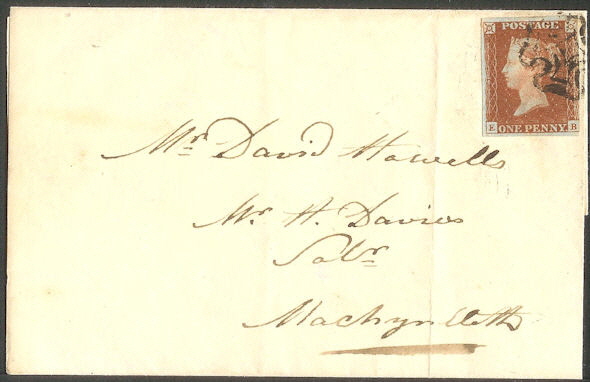 POSTAGE
E ONE PENNY B
Mr David Howells
Mr. H. Davies
Solr
Machynlleth